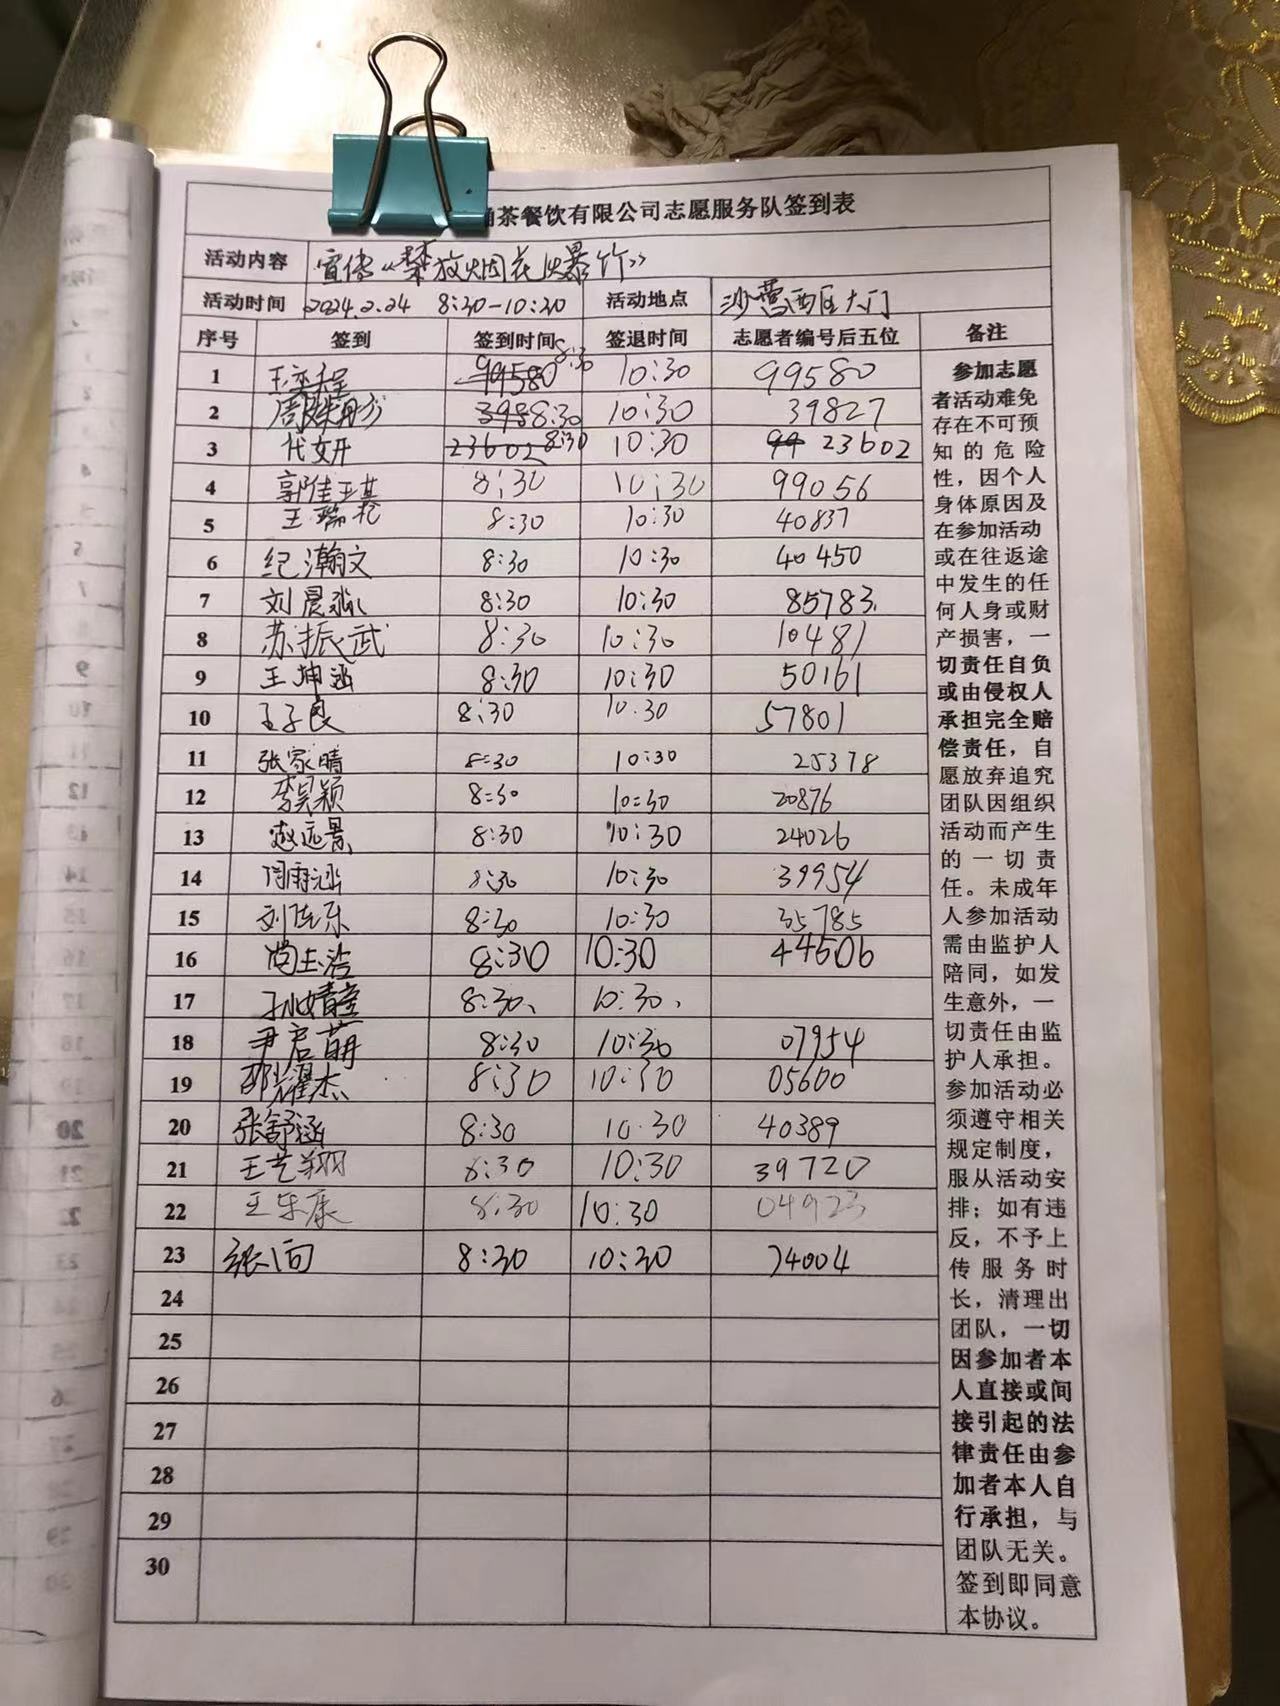 茶餐饮有限公司志愿服务队签到表
活动内容 宣传《禁放烟花爆竹》
活动时间 2024.2.24 8:30-10:30 活动地点 沙营西区大门
序号 签到 签到时间 签退时间 志愿者编号后五位 备注
1 王奕程 99580 8:30 10:30 99580
2 398 8:30 10:30 39827
3 代妍 23602 8:30 10:30 99 23602
4 郭佳琪 8:30 10:30 99056
5 王瑞 8:30 10:30 40837
6 纪瀚文 8:30 10:30 40450
7 刘晨 8:30 10:30 85783
8 苏振武 8:30 10:30 10481
9 王坤涵 8:30 10:30 50161
10 王子良 8:30 10:30 57801
11 张家晴 8:30 10:30 25378
12 李昊颖 8:30 10:30 20876
13 赵远景 8:30 10:30 24026
14 周雨涵 8:30 10:30 39954
15 刘 东 8:30 10:30 35785
16 8:30 10:30 44506
17 孙婧 8:30、 10:30、
18 尹启萌 8:30 10:30 07954
19 邵耀杰 8:30 10:30 05600
20 张舒涵 8:30 10:30 40389
21 王艺翔 8:30 10:30 39720
22 王乐康 8:30 10:30 04923
23 张 8:30 10:30 24004
24
25
26
27
28
29
30
参加志愿
者活动难免
存在不可预
知的危险
性，因个人
身体原因及
在参加活动
或在往返途
中发生的任
何人身或财
产损害，一
切责任自负
或由侵权人
承担完全赔
偿责任，自
愿放弃追究
团队因组织
活动而产生
的一切责
任。未成年
人参加活动
需由监护人
陪同，如发
生意外，一
切责任由监
护人承担。
参加活动必
须遵守相关
规定制度，
服从活动安
排；如有违
反，不予上
传服务时
长，清理出
团队，一切
因参加者本
人直接或间
接引起的法
律责任由参
加者本人自
行承担，与
团队无关。
签到即同意
本协议。